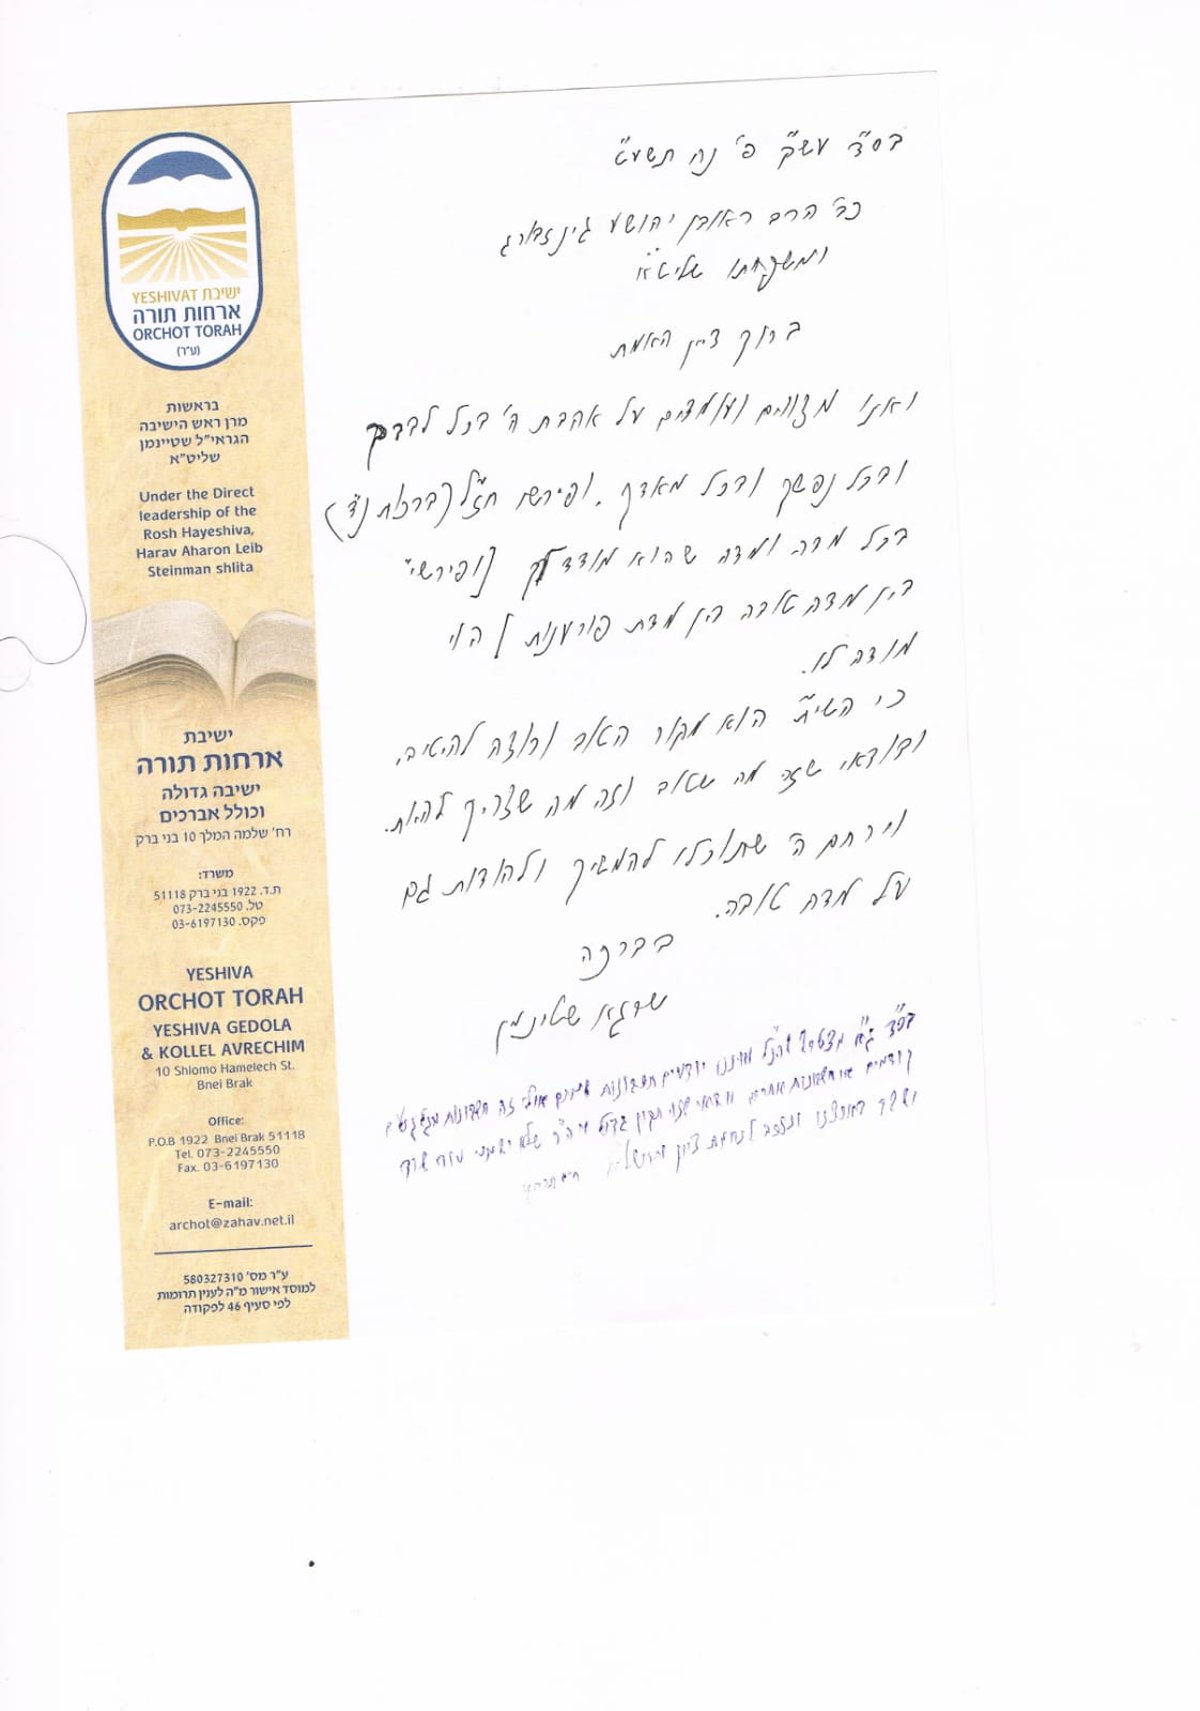 ישיבת YESHIVAT
ארחות תורה
ORCHOT TORAH
(ע"ר)
בראשות
מרן ראש הישיבה
הגראי"ל שטיינמן
שליט"א
Under the Direct
leadership of the
Rosh Hayeshiva,
Harav Aharon Leib
Steinman shlita
ישיבת
ארחות תורה
ישיבה גדולה
וכולל אברכים
רח' שלמה המלך 10 בני ברק
משרד:
ת.ד. 1922 בני ברק 51118
טל. 073-2245550
פקס. 03-6197130
YESHIVA
ORCHOT TORAH
YESHIVA GEDOLA
& KOLLEL AVRECHIM
10 Shlomo Hamelech St.
Bnei Brak
Office:
P.O.B 1922 Bnei Brak 51118
Tel. 073-2245550
Fax. 03-6197130
E-mail:
archot@zahav.net.il
ע"ר מס' 580327310
למוסד אישור מ"ה לענין תרומות
לפי סעיף 46 לפקודה
בס"ד עש"ק פ' נח תשע"ט
כב' הרב ראובן יהושע גינזבורג
ומשפחתו שליט"א
ברוך דיין האמת
ואנו מצווים ועומדים על אהבת ה' בכל לבבך
ובכל נפשך ובכל מאדך. ופירשו חז"ל (ברכות נ"ד)
בכל מדה ומדה שהוא מודד לך [ופירש"י
בין מדה טובה בין מדת פורענות] הוי
מודה לו.
כי השי"ת הוא מקור הטוב ורוצה להיטיב,
ובודאי שזה מה שטוב וזה מה שצריך להיות.
וירחם ה' שתוכלו להמשיך ולהודות גם
על מדה טובה.
בברכה
שרגא שטינמן
בס"ד גם מצטרף יודעים חשבונות אולי זה חשבונות
קודמים או חשבונות אחרים תקון גדול
לנחמת ציון וירושלים